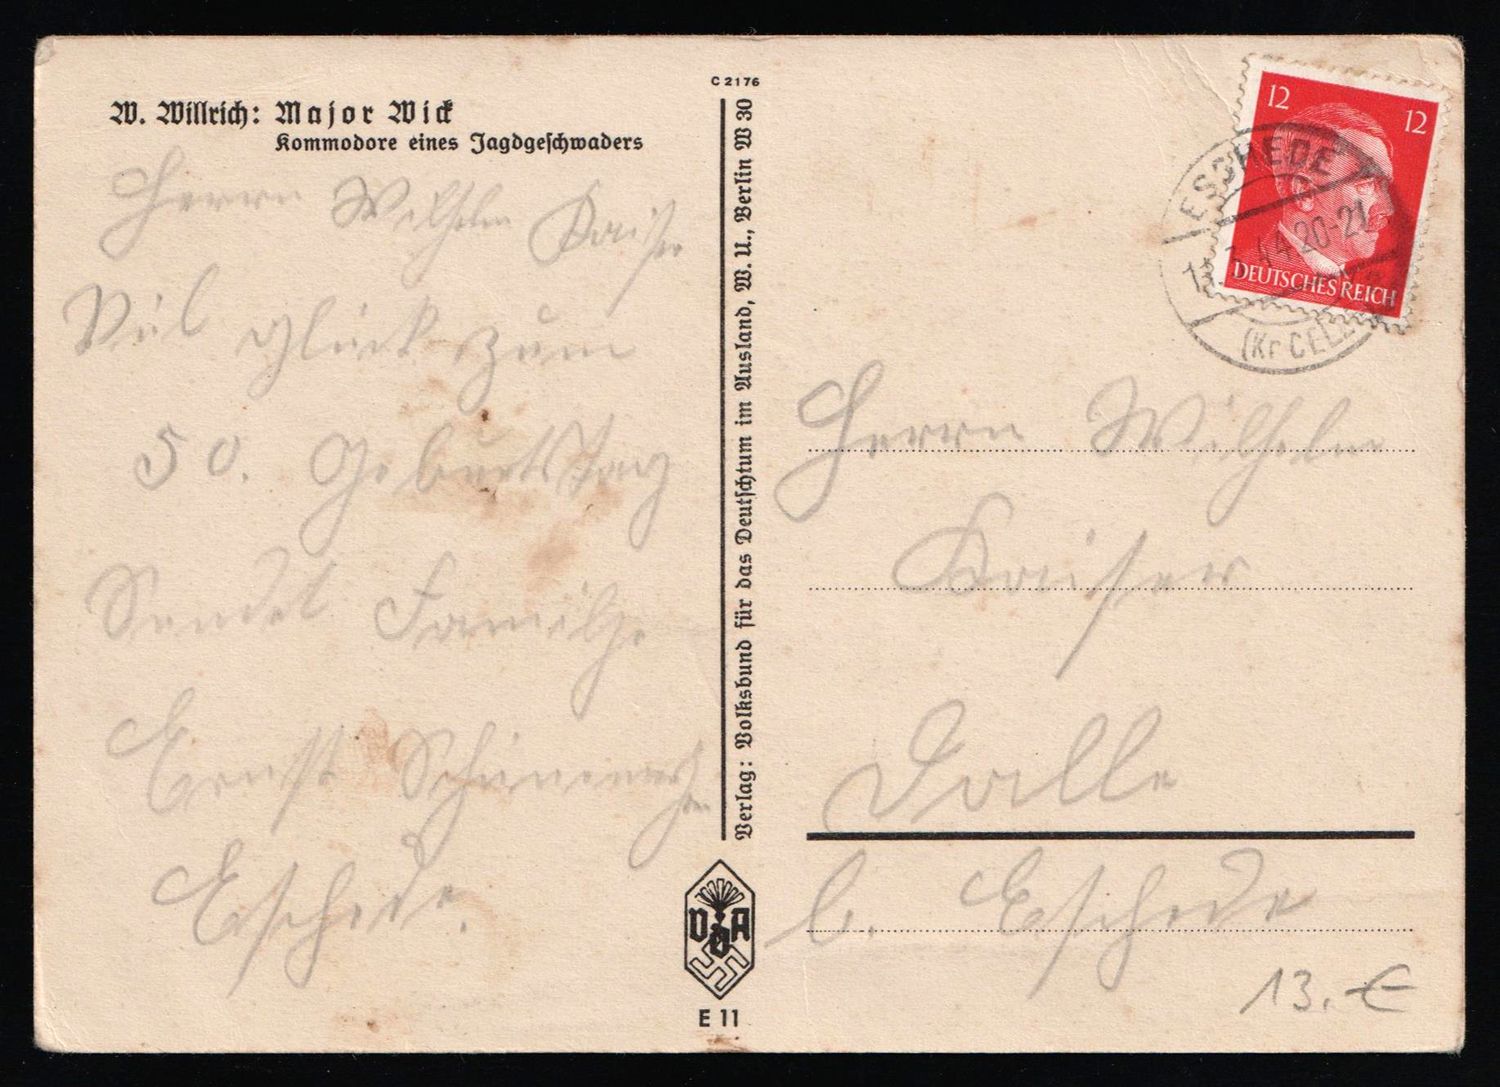 C 2176
W. Willrich: Major Wick
Kommodore eines Jagdgeschwaders
Herrn Wilhelm Kaiser
Viel Glück zum
50. Geburtstag
Sendet Familge
Ernst Schünemann
Eschede.
Verlag: Volksbund für das Deutschtum im Ausland, W. U., Berlin W 30
VDA
E 11
12 12
DEUTSCHES REICH
ESCHEDE
44 20-21
(Kr CELLE)
Herrn Wilhelm
Kaiser
Dalle
b. Eschede
13.-€